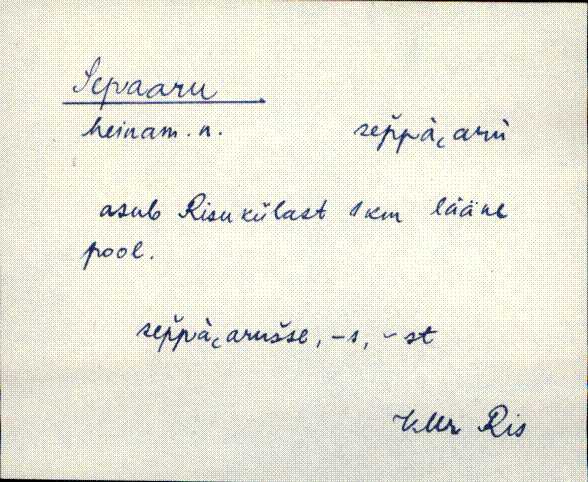 Sepaaru
heinam. n. sep̆pà, arŭ
asub Risu külast 1 km lääne
pool.
sep̆pà, arus̆se, -s, -st
Ris